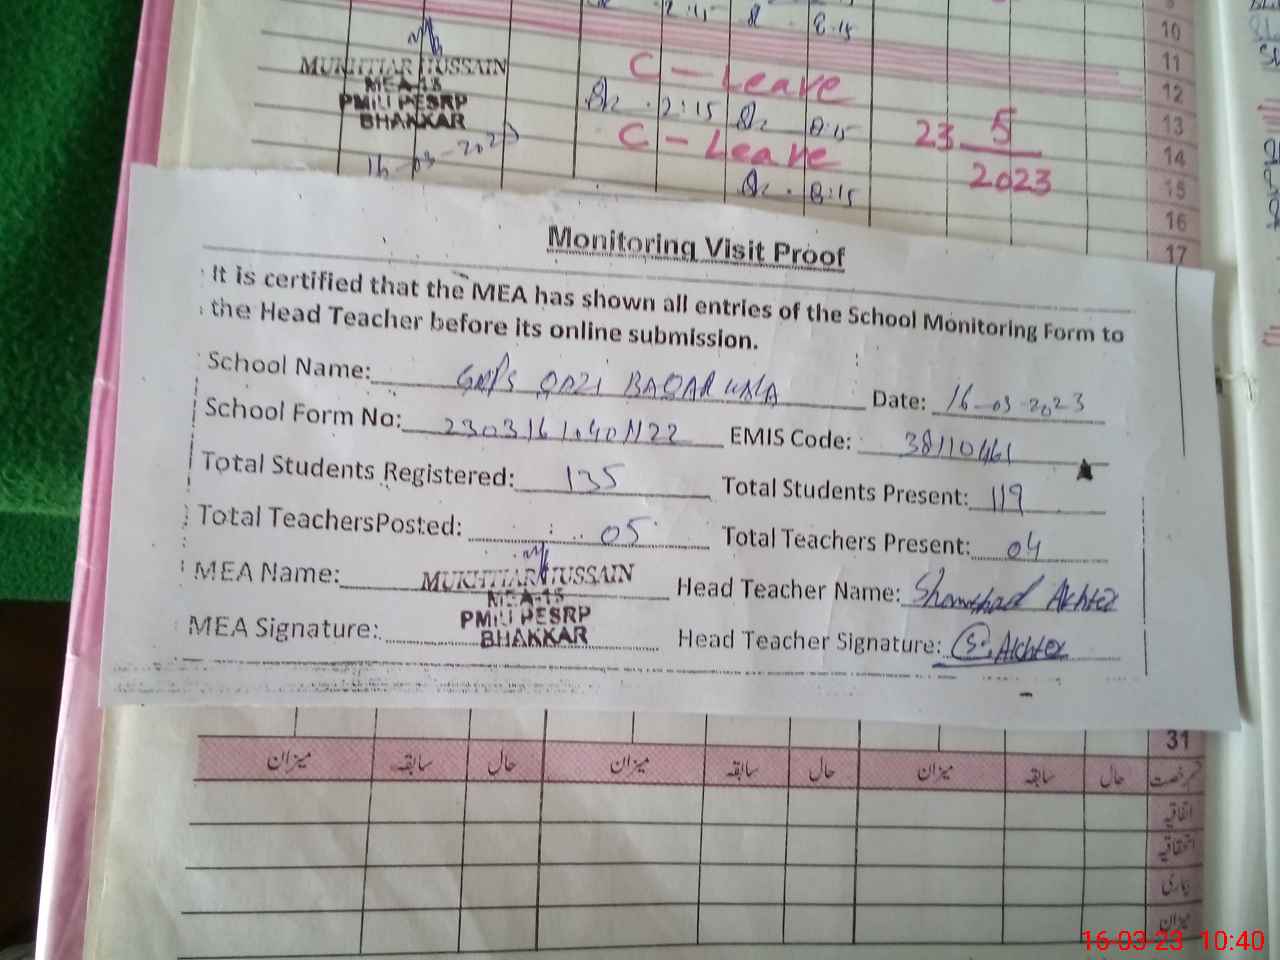 2:15 8:15
10
11
MUKHTIAR HUSSAIN
MEA-15
PMIU PESRP
BHAKKAR
16-03-2023
C - Leave
12
2:15 8:15
13
C - Leave
23 5
2023
14
8:15
15
16
17
Monitoring Visit Proof
It is certified that the MEA has shown all entries of the School Monitoring Form to
the Head Teacher before its online submission.
School Name: QAZI Date: 16-03-2023
School Form No: EMIS Code: 38110461
Total Students Registered: 135 Total Students Present: 119
Total TeachersPosted: 05 Total Teachers Present: 04
MEA Name: MUKHTIAR HUSSAIN Head Teacher Name: Akhter
MEA-15
PMIU PESRP
BHAKKAR
MEA Signature: Head Teacher Signature: S. Akhter
31
رخصت حال سابقہ میزان حال سابقہ میزان حال سابقہ میزان
اتفاقیہ
استحقاقیہ
بیماری
میزان
16-03-23 10:40